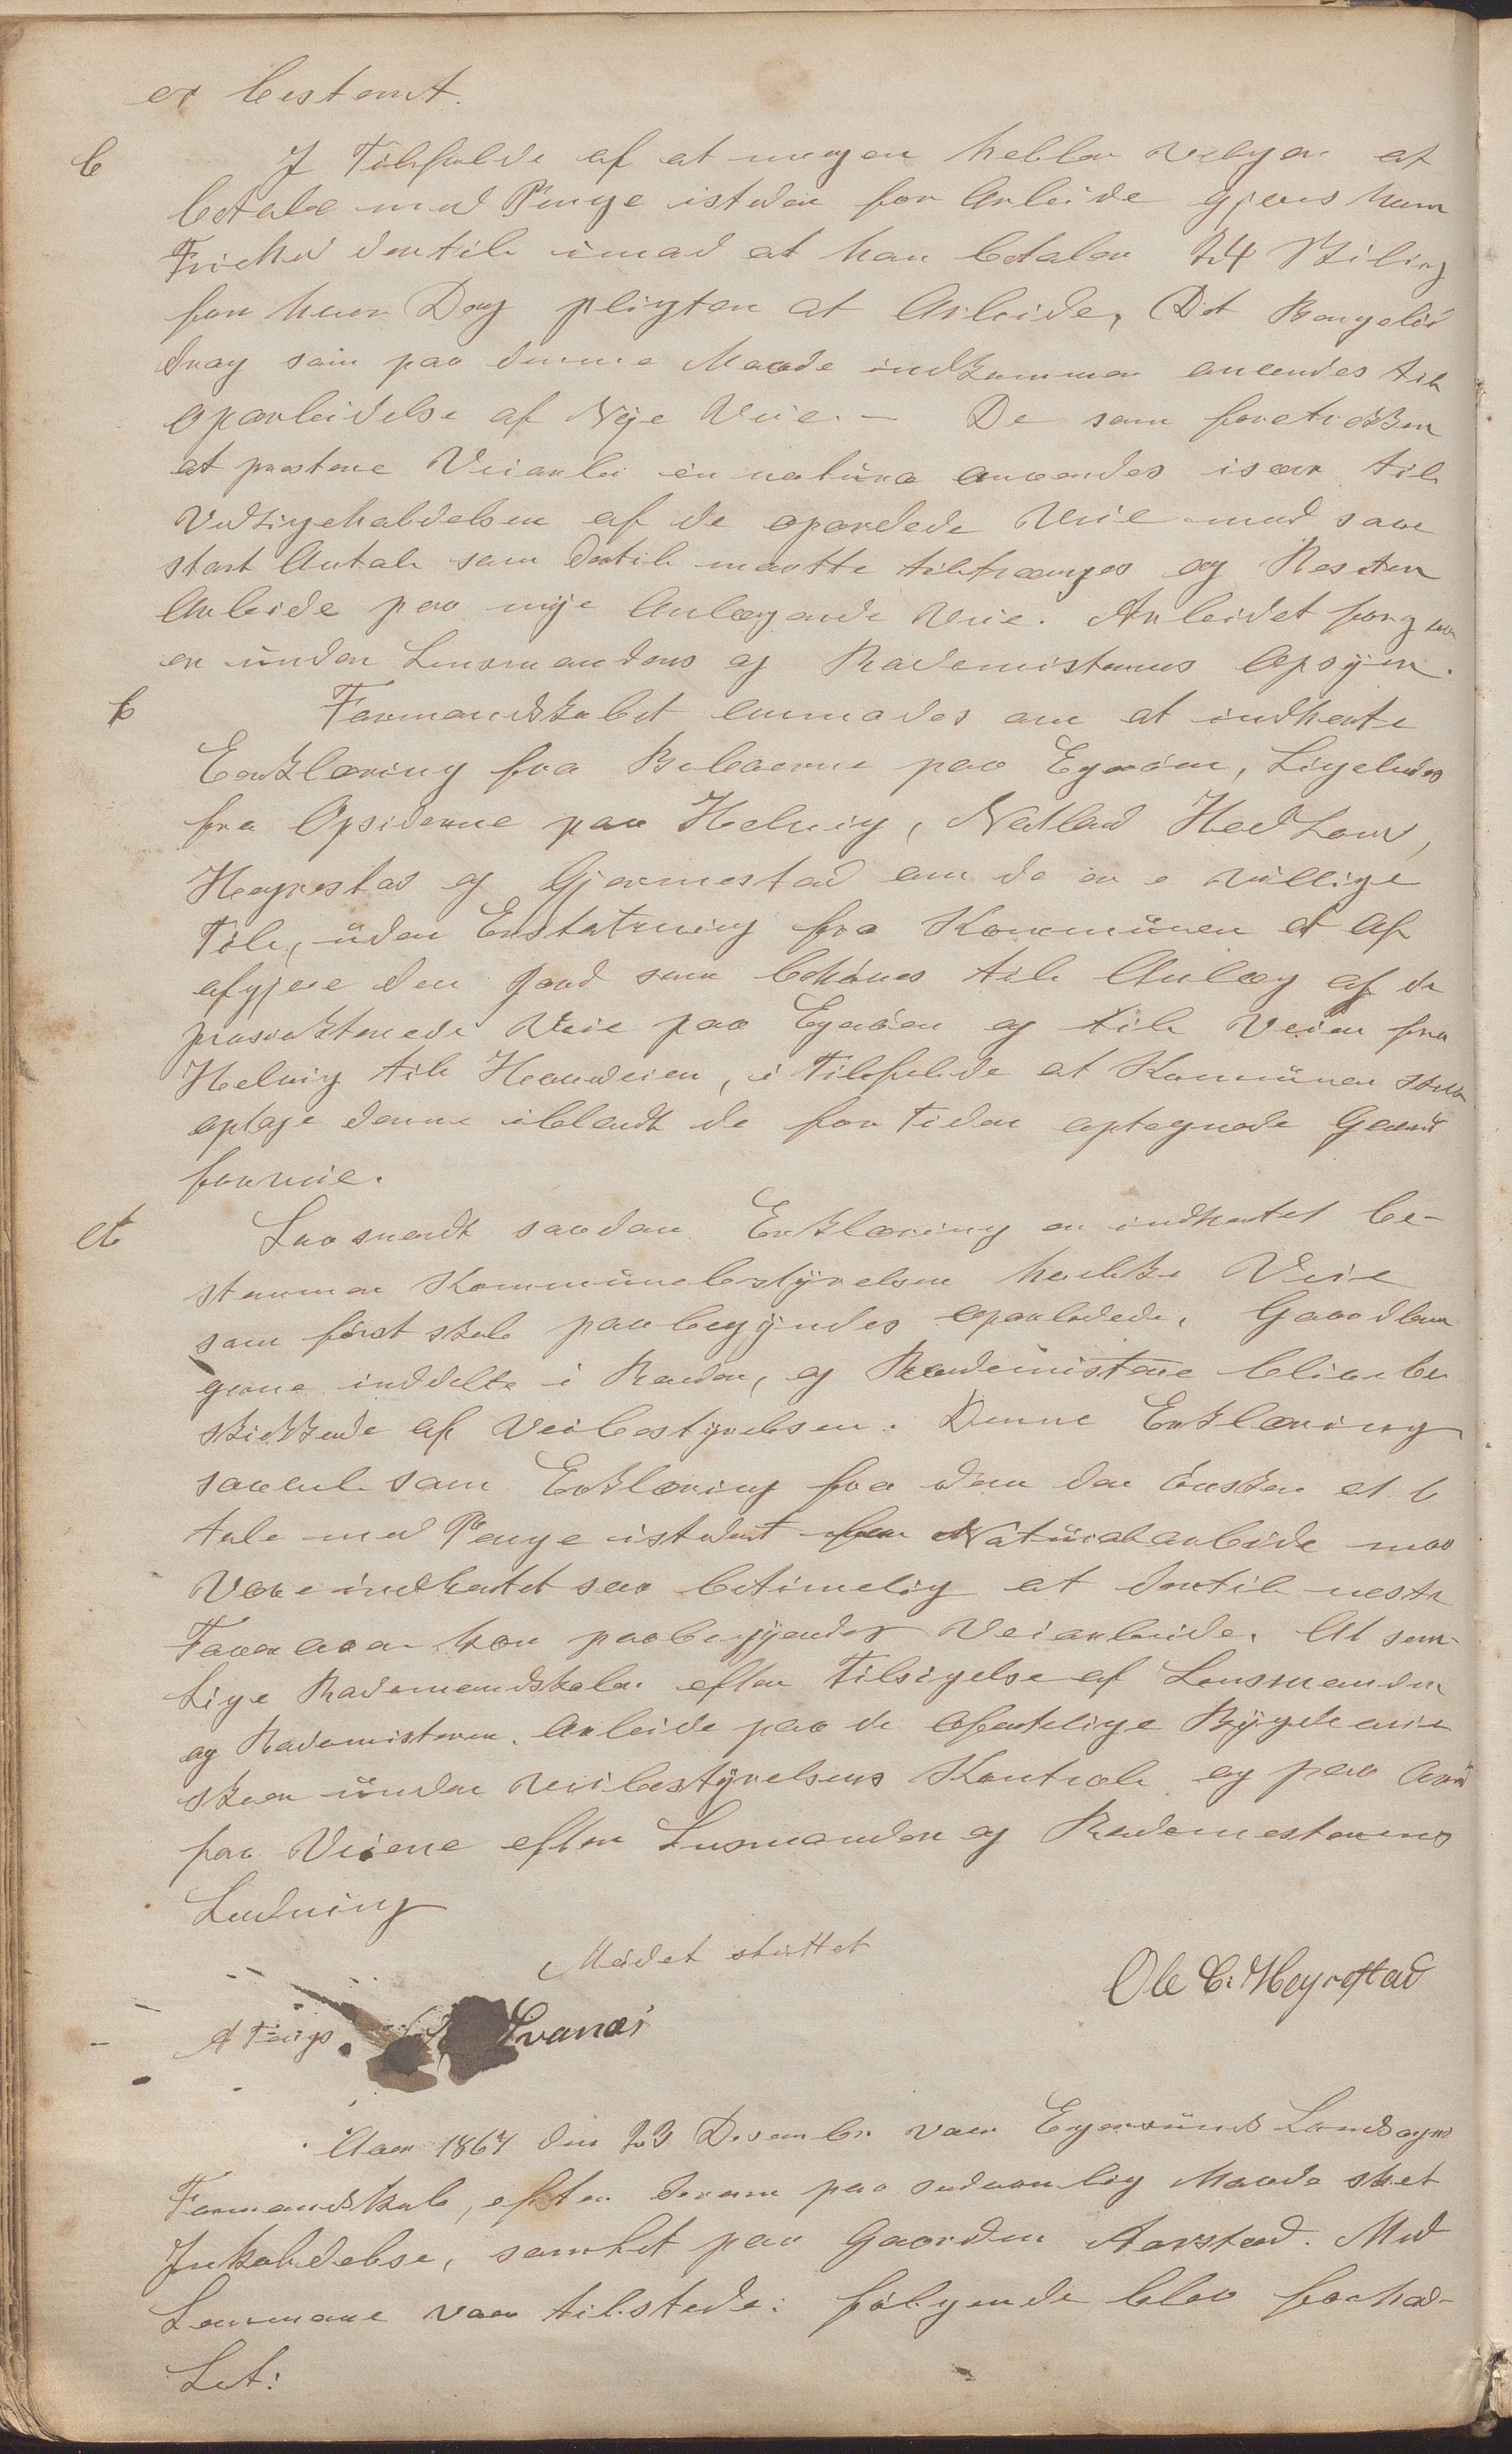 er bestemt.
b I Tilfælde af at nogen heller velger at
betale med Penge isteden for Arbeide gjeves ham
Frihed dertil imod at han betaler 24 Skiling
for hver Dag pligten at Arbeide, Det Pengebid
drag som paa denne Maade indkommer anvendes till
Oparbeidelse af Nye Veie. — De som foretrekker
at prestere Veiarbei in natura anvendes især till
Vedligeholdelsen af de oparbedede Veie med saa
stort Antal som dertil maatte tiltrænges og Resten
Arbeide paa nye Anlægende Veie. Arbeidet foregaar
er under Lensmandens og Rademisterens Opsyn.
c Formandskabet anmodes om at indhente
Erklæring fra Beboerne paa Egerøen, Ligeledes
fra Opsiderne paa Helvig, Nedland Hedland,
Hegrestad og Gjermestad om de er e villige
Till, uden Erstatning fra Kommunen at af
afgjeve den Jord som behøves till Anlæg af de
prosiekterede Veie paa Egerøen og till Veien fra
Helvig till Hovedveien, i Tilfælde at Kommunen skulde
optage denne iblandt de for Tiden optegnede Gaard
forveie.
d Saasnardt saadan Erklæring er indhentet be-
stemmer Kommunebestyrelsen hvilke Veie
som først skal paabegyndes oparbedede, Gaardbru
gerne inddelte i Roder, og Rodemistere bliver be
skikkede af Veibestyrelsen. Denne Erklæring
saavel som Erklæring fra dem der ønsker at b
tale med Penge istedet for Naturalarbeide maa
Være indhentet saa betimelig at dertil neste
Foraar kan paabegyndes Veiarbeide. At sam-
lige Rademandskaber efter Tilsigelse af Lensmanden
og Rademisteren. Arbeide paa de ofentlige Bygdeveie
skeer under Veibestyrelsens Kontrol og paa
for Veiene efter Lensmanden og Rademesterens
Ledning
Mødet sluttet
Ole C: Hegrestad
A Feigs Svanæs
Aar 1867 den 23 Desember var Egersunds Landsogns
Formandskab, efter derom paa sedvanlig Maade skeet
Inkaldelse, samlet paa Gaarden Aarstad. Med
Lemmene var tilstede: følgende blev forhad-
Let: